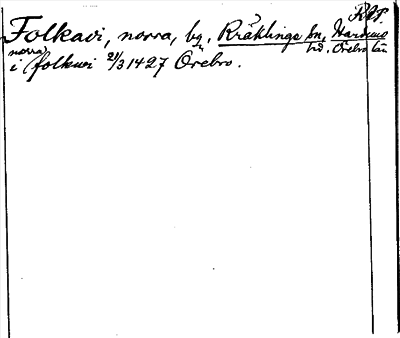 RAP.
Folkavi, norra, by, Kräklinge sn, Hardemo
hd. Örebro län
norra
i folkavi 21/3 1427 Örebro.